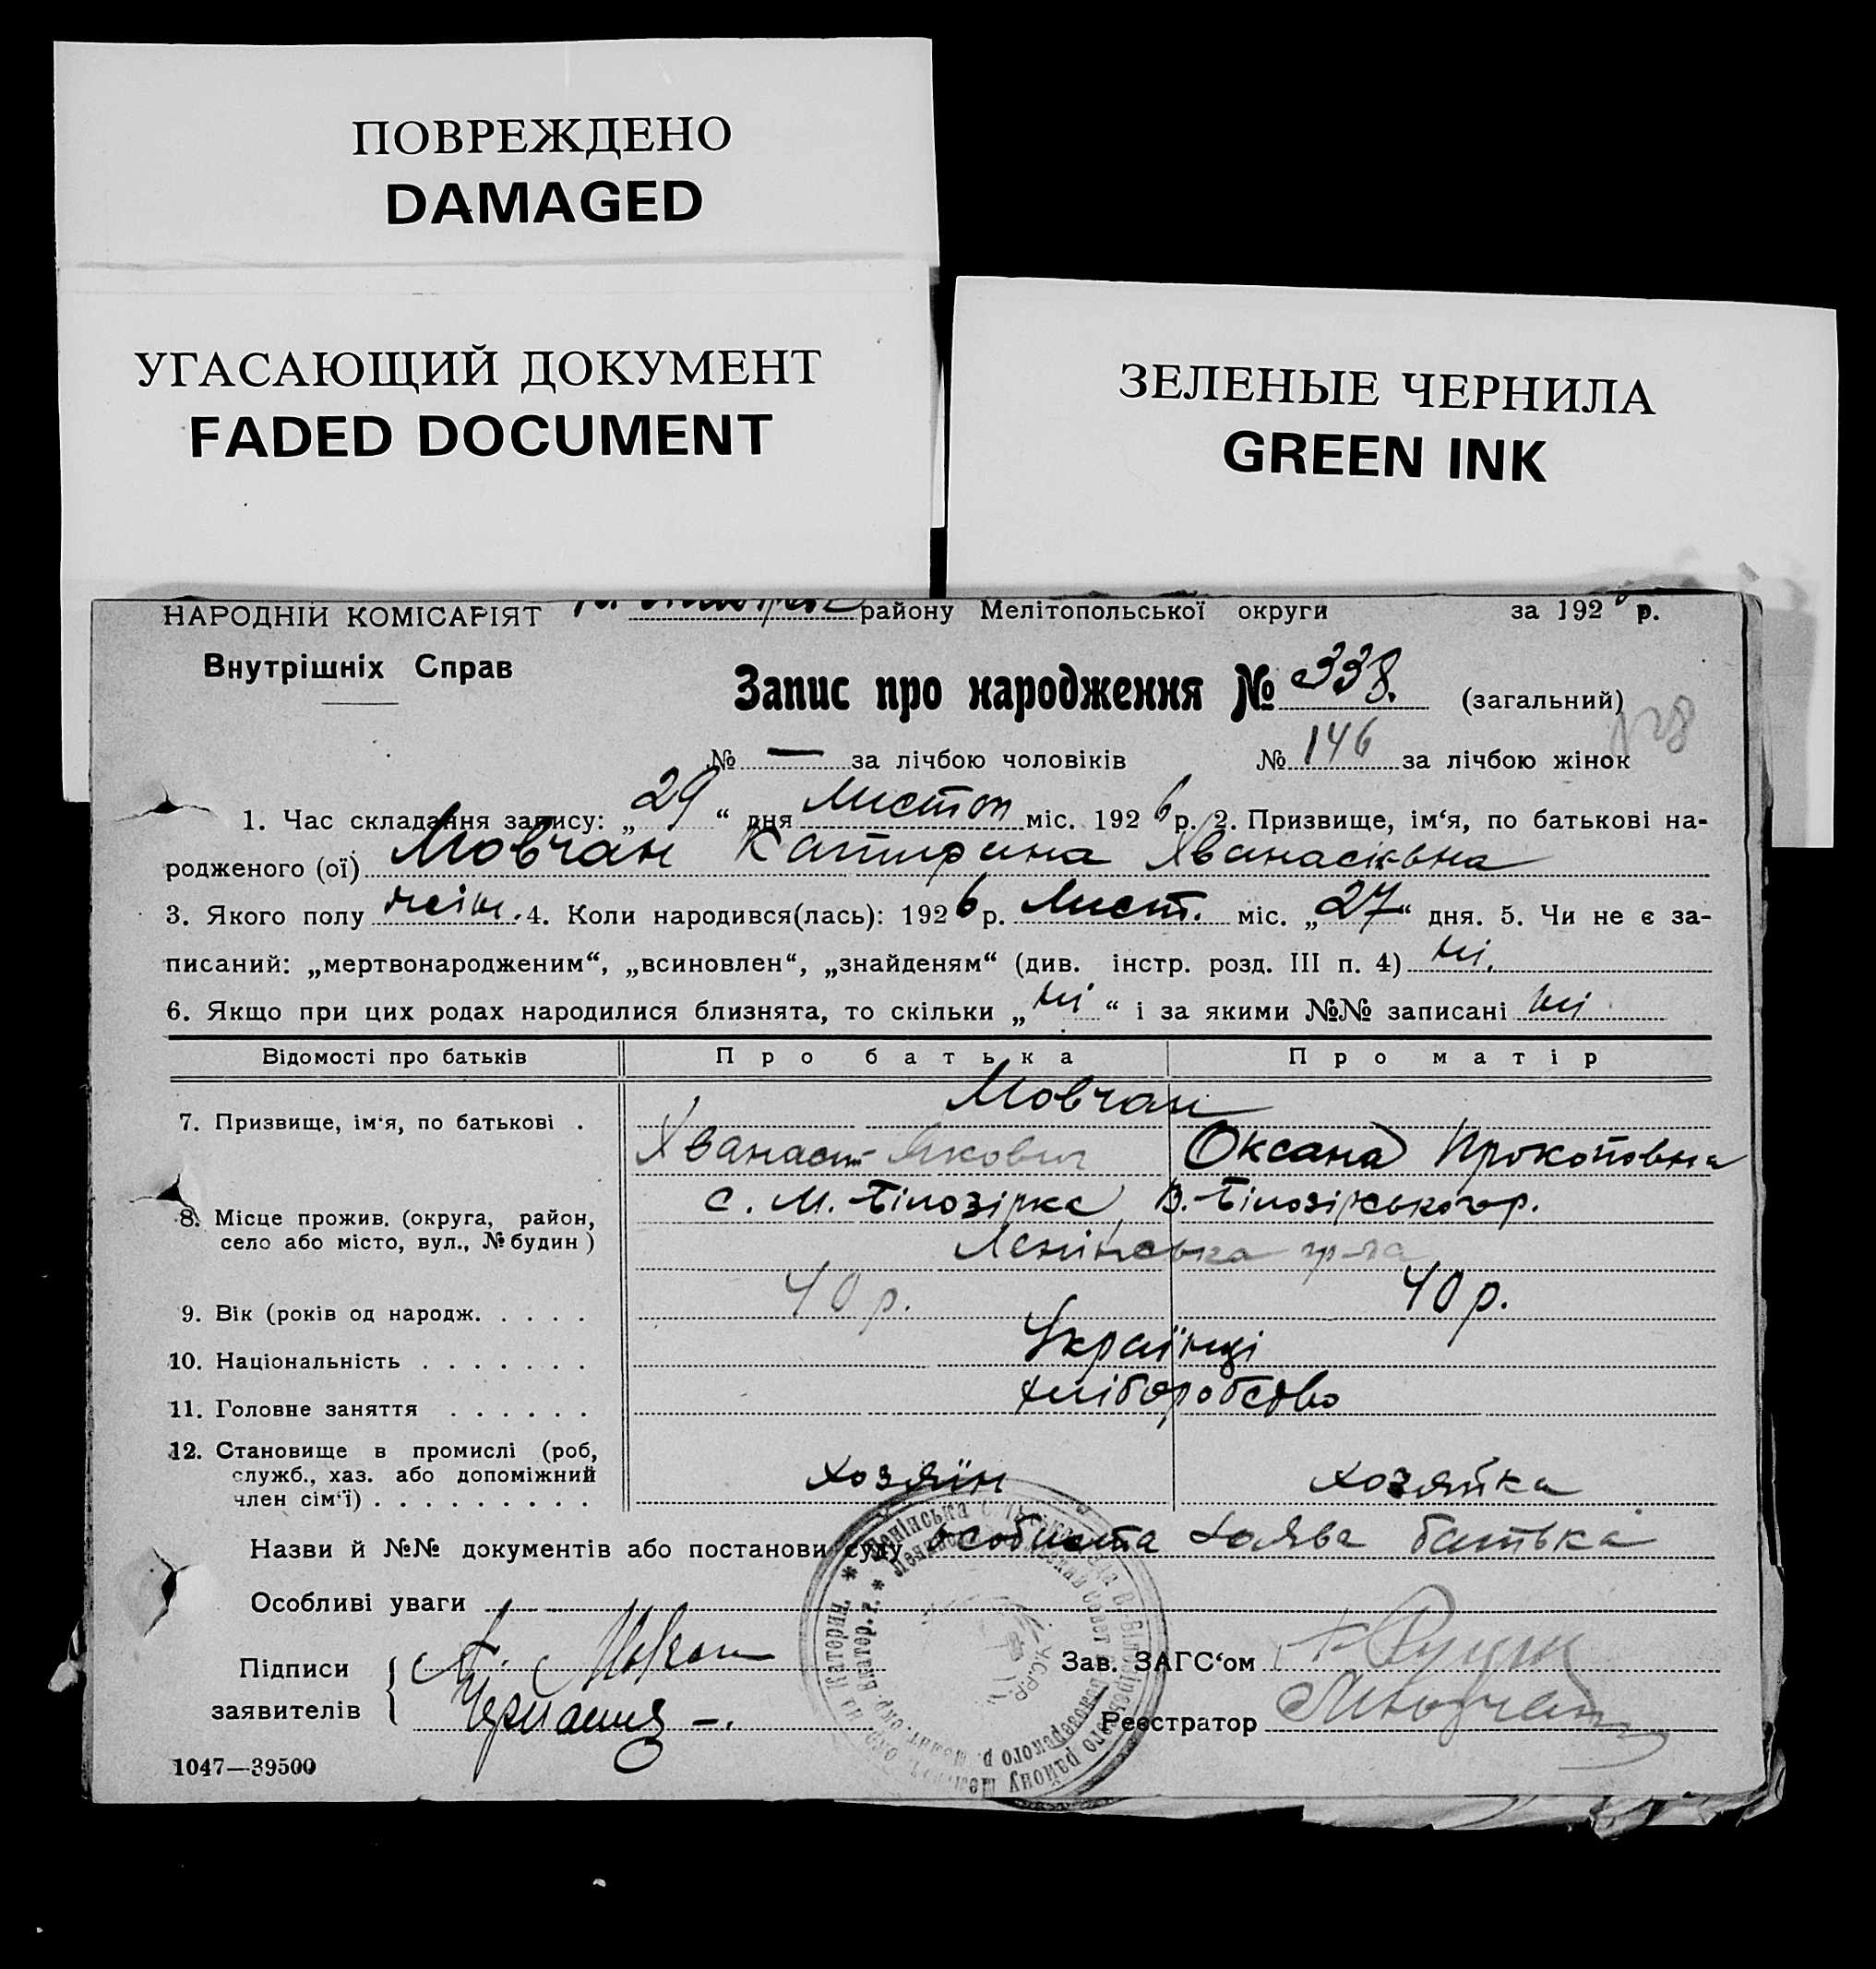 ПОВРЕЖДЕНО
DAMAGED
УГАСАЮЩИЙ ДОКУМЕНТ
FADED DOCUMENT
ЗЕЛЕНЫЕ ЧЕРНИЛА
GREEN INK
НАРОДНІЙ КОМІСАРІЯТ району Мелітопольської округи за 192 р.
Внутрішніх Справ
Запис про народження № 338. (загальний)
№ — за лічбою чоловіків № 146 за лічбою жінок
1. Час складання запису: „29“ дня Листоп міс. 1926 р. 2. Призвище, ім‘я, по батькові на-
родженого (ої) Мовчан Катирина Хванасівна
3. Якого полу жін. 4. Коли народився(лась): 1926 р. Лист. міс. „27“ дня. 5. Чи не є за-
писаний: „мертвонародженим“, „всиновлен“, „знайденям“ (див. інстр. розд. III п. 4) ні.
6. Якщо при цих родах народилися близнята, то скільки „ні“ і за якими №№ записані ні
Відомості про батьків Про батька Про матір
Мовчан
7. Призвище, ім‘я, по батькові .
Хванасит Якович Оксана Прокоповна
с. М.-Білозірка, В.-Білозірського р.
8. Місце прожив. (округа, район,
село або місто, вул., № будин)
Ленінська гр-да
9. Вік (років од народж. . . . . 40 р. 40 р.
10. Національність . . . . . . . Українці
11. Головне заняття . . . . . . хліборобство
12. Становище в промислі (роб,
служб., хаз. або допоміжний
член сім‘ї) . . . . . . . . . хозяїн хозяйка
Назви й №№ документів або постанови суду особиста заява батька
Особливі уваги
Підписи
заявителів
Зав. ЗАГС‘ом
Реєстратор
1047—39500